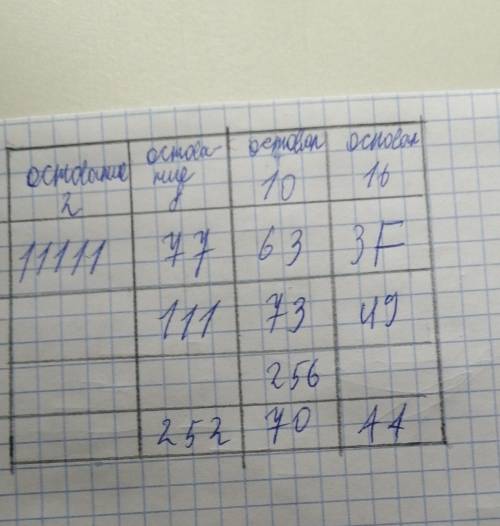 основание 2 | основа-ние 8 | основан 10 | основан 16
11111 | 77 | 63 | 3F
111 | 73 | 49
256
252 | 70 | AA